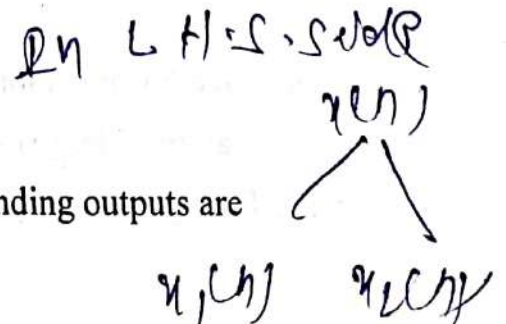 In L.H.S. side
x(n)
nding outputs are
x₁(n) x₂(n)